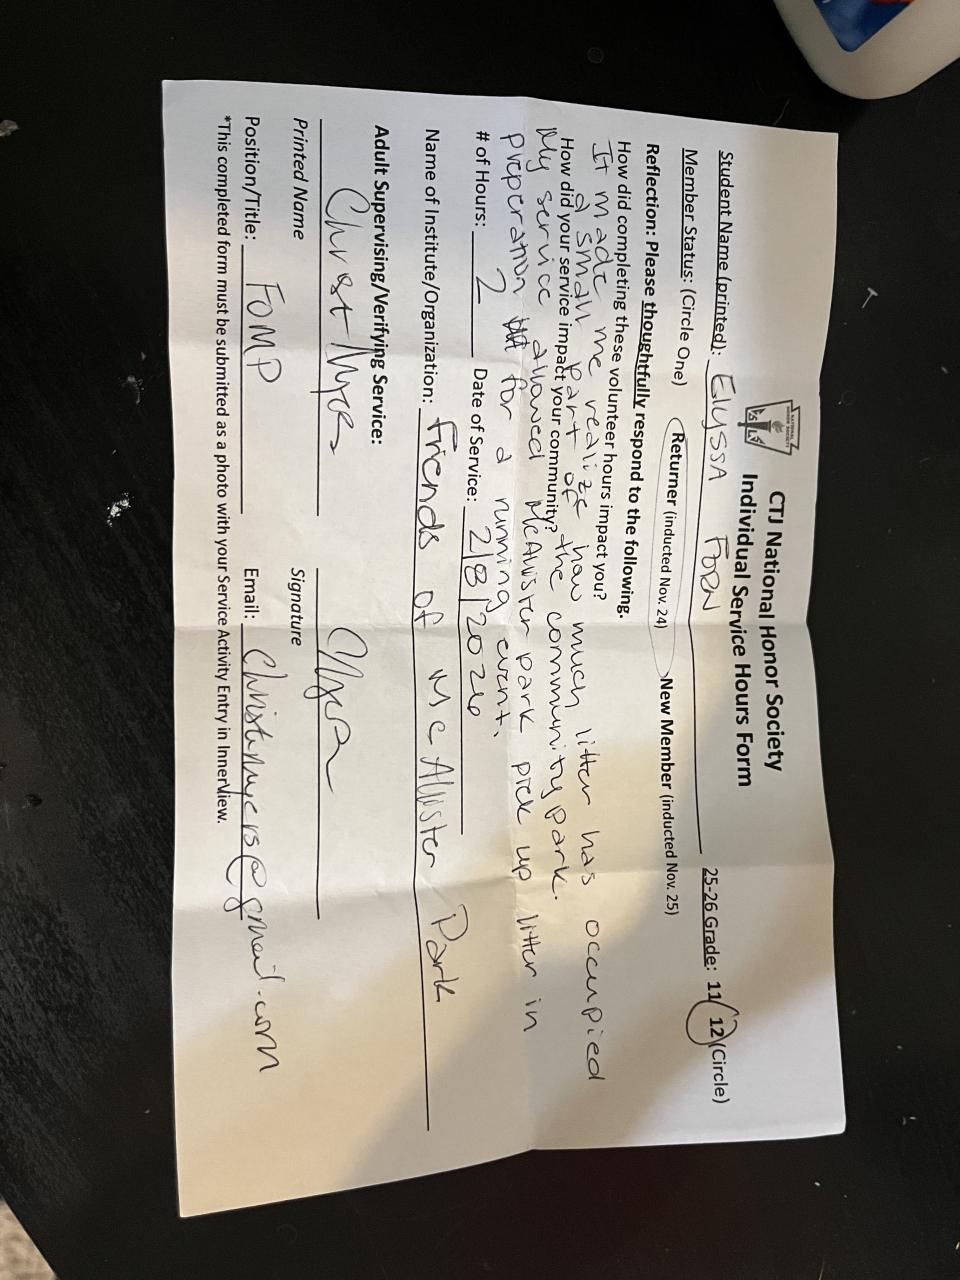 CTJ National Honor Society
Individual Service Hours Form
Student Name (printted): Elyssa Ford 25-26 Grade: 11 12 (Circle)
Member Status: (Circle One) Returner (inducted Nov. 24) New Member (inducted Nov. 25)
Reflection: Please thoughtfully respond to the following.
How did completing these volunteer hours impact you?
It made me realize how much litter has occupied
a small part of the community park.
How did your service impact your community?
My service allowed McAllister park pick up litter in
preperation for a running event.
# of Hours: 2 Date of Service: 2/8/2026
Name of Institute/Organization: Friends of McAllister Park
Adult Supervising/Verifying Service:
Christ Myers
Printed Name Signature
Position/Title: FOMP Email: @gmail.com
*This completed form must be submitted as a photo with your Service Activity Entry in InnerView.